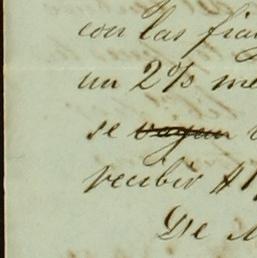 con las fian
un 2% me
se vayan
recibir #1
De